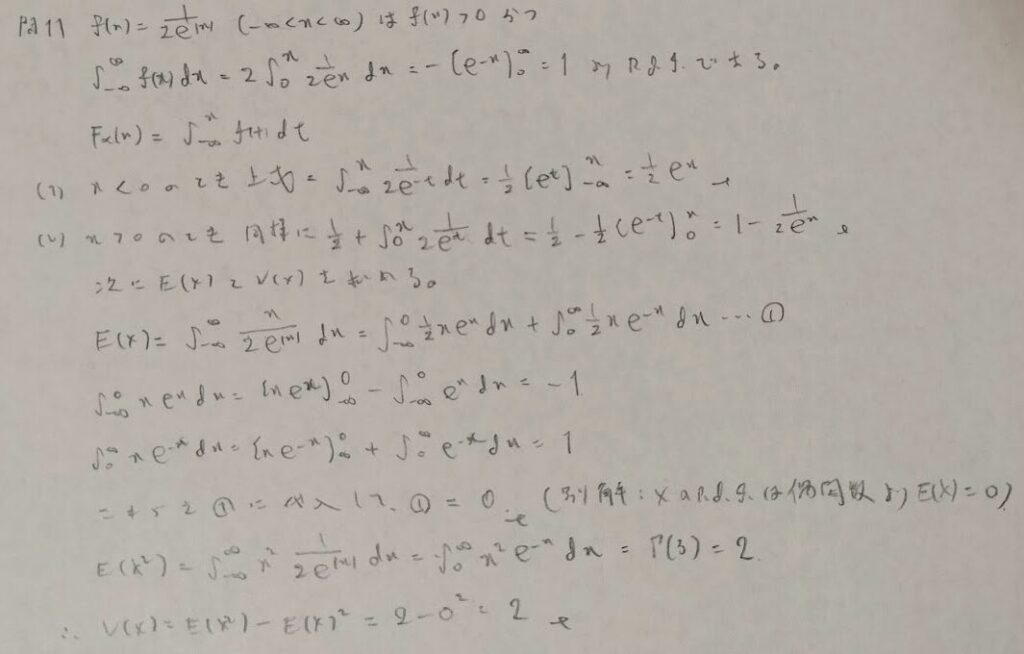 問11 f(x) = 1/2e^|x| (-∞<x<∞) は f(x)>0 かつ
∫_{-∞}^{∞} f(x) dx = 2∫_0^x 1/2e^x dx = -[e^-x]_0^∞ = 1 より p.d.f. である。
F_x(x) = ∫_{-∞}^x f(t) dt
(1) x<0 のとき 上式 = ∫_{-∞}^x 1/2e^-t dt = 1/2 [e^t]_{-∞}^x = 1/2 e^x
(2) x>0 のとき 同様に 1/2 + ∫_0^x 1/2e^t dt = 1/2 - 1/2 [e^-t]_0^x = 1 - 1/2e^x
次に E(X) と V(X) を求める。
E(X) = ∫_{-∞}^{∞} x/2e^|x| dx = ∫_{-∞}^0 1/2 xe^x dx + ∫_0^∞ 1/2 xe^-x dx ... ①
∫_{-∞}^0 xe^x dx = [xe^x]_{-∞}^0 - ∫_{-∞}^0 e^x dx = -1
∫_0^∞ xe^-x dx = [xe^-x]_∞^0 + ∫_0^∞ e^-x dx = 1
これらを①に代入して, ① = 0 (別解: X の p.d.f. は偶関数より E(X) = 0)
E(X²) = ∫_{-∞}^{∞} x² 1/2e^|x| dx = ∫_0^∞ x²e^-x dx = Γ(3) = 2
∴ V(X) = E(X²) - E(X)² = 2-0² = 2